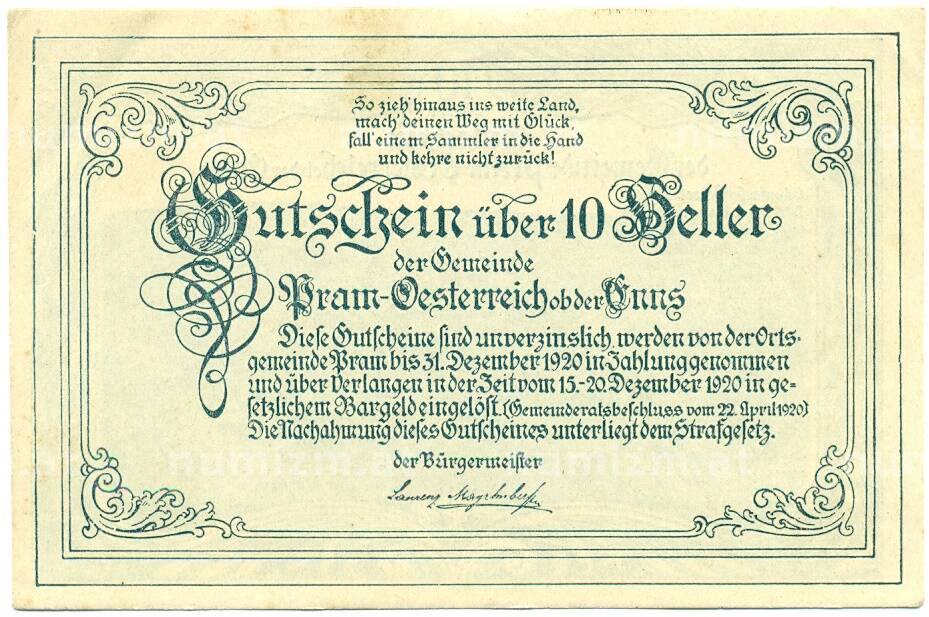 So zieh' hinaus ins weite Land,
mach' deinen Weg mit Glück,
fall' einem Sammler in die Hand
und kehre nicht zurück!
Gutschein über 10 Heller
der Gemeinde
Pram-Oesterreich ob der Enns
Diese Gutscheine sind unverzinslich, werden von der Orts-
gemeinde Pram bis 31. Dezember 1920 in Zahlung genommen
und über Verlangen in der Zeit vom 15.-20. Dezember 1920 in ge-
setzlichem Bargeld eingelöst. (Gemeinderatsbeschluss vom 22. April 1920)
Die Nachahmung dieses Gutscheines unterliegt dem Strafgesetz.
der Bürgermeister
Laurenz
numizm.at